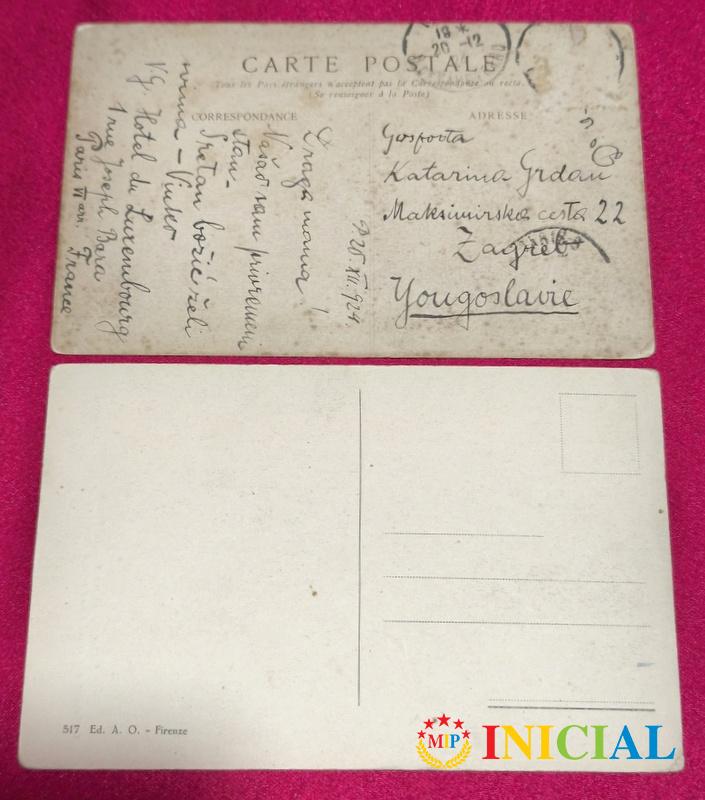 18 *
20 -12
CARTE POSTALE
Tous les Pays étrangers n'acceptent pas la Correspondance au recto.
(Se renseigner à la Poste)
CORRESPONDANCE
P. 20. XII. 924.
Draga mama!
Našao sam privremeni
stan.
Sretan božić želi
svima - Vinko
Vg. Hotel du Luxembourg
1 rue Joseph Bara
Paris VI arr. France
ADRESSE
Gospođa
Katarina Grdan
Maksimirska cesta 22
Zagreb
Yougoslavie
517 Ed. A. O. - Firenze
MIP INICIAL